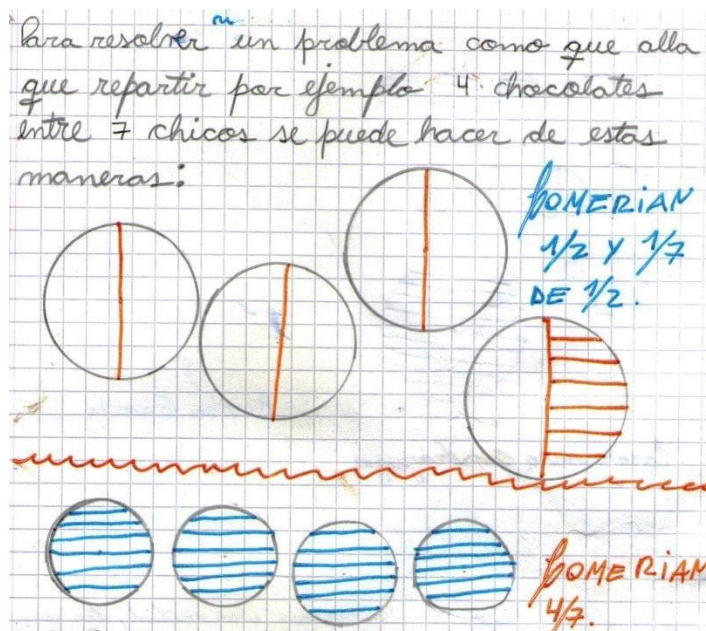 Para resolver un problema como que alla
que repartir por ejemplo 4 chocolates
entre 7 chicos se puede hacer de estas
maneras:
COMERIAN
1/2 Y 1/7
DE 1/2.
COMERIAN
4/7.